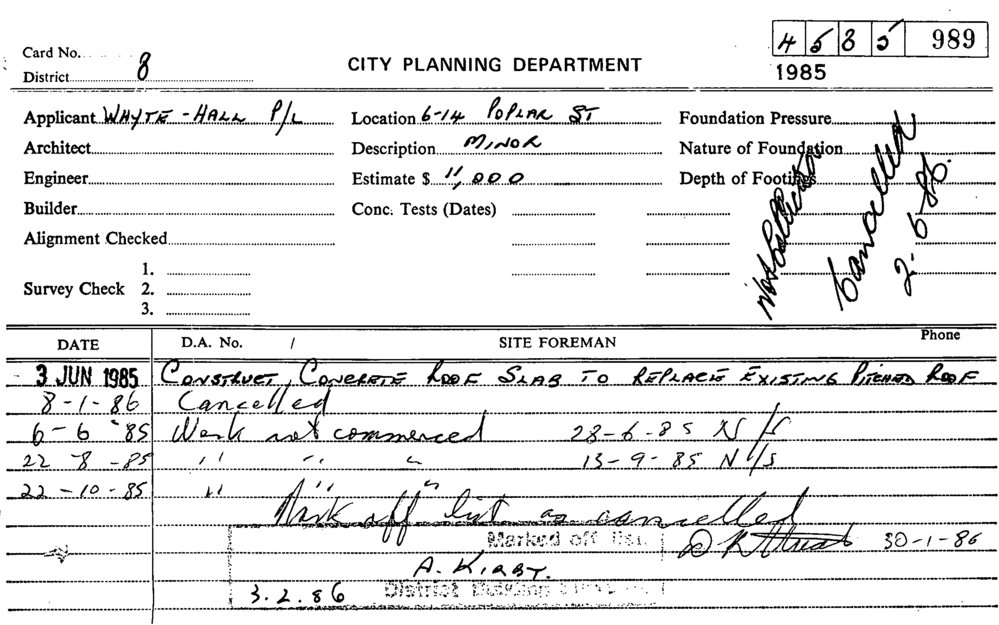 4 5 8 5 989
Card No.
CITY PLANNING DEPARTMENT
District 8
1985
Applicant WHYTE - HALL P/L Location 6-14 POPLAR ST Foundation Pressure
Architect Description MINOR Nature of Foundation
Engineer Estimate $ 11,000 Depth of Footings
Builder Conc. Tests (Dates)
Alignment Checked
1.
Survey Check 2.
3.
Cancelled
2-6-86.
DATE D.A. No. / SITE FOREMAN Phone
3 JUN 1985 CONSTRUCT CONCRETE ROOF SLAB TO REPLACE EXISTING PITCHED ROOF
8-1-86 Cancelled
6-6-85 Work not commenced 28-6-85 N/S
22-8-85 " " " 13-9-85 N/S
22-10-85 " " "
Mark off list as cancelled
Marked off list 30-1-86
A. KIRBY.
3.2.86 District Building